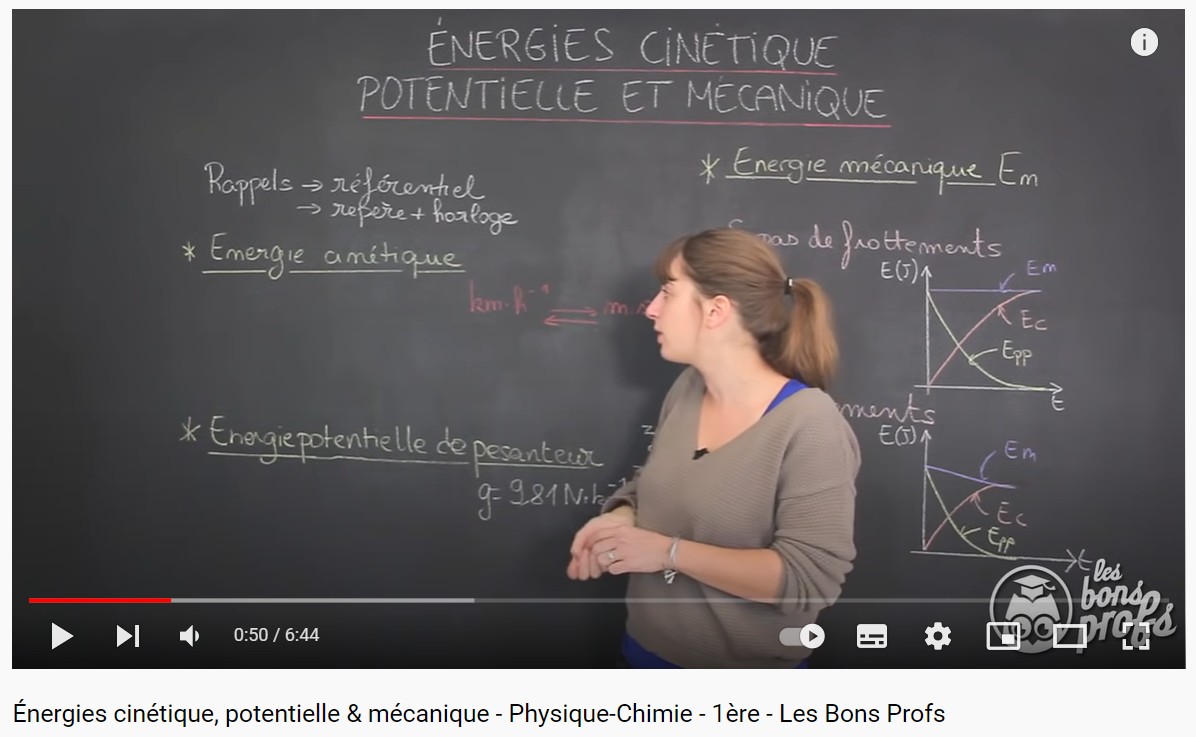 ÉNERGIES CINÉTIQUE
POTENTIELLE ET MÉCANIQUE
Rappels → référentiel
→ repère + horloge
* Energie cinétique
km.h⁻¹ ⇌ m.
* Energie potentielle de pesanteur
g= 9,81 N.k
* Energie mécanique Em
pas de frottements
E(J)
Em
Ec
Epp
t
E(J)
Em
Ec
Epp
t
les
bons
profs
0:50 / 6:44
Énergies cinétique, potentielle & mécanique - Physique-Chimie - 1ère - Les Bons Profs